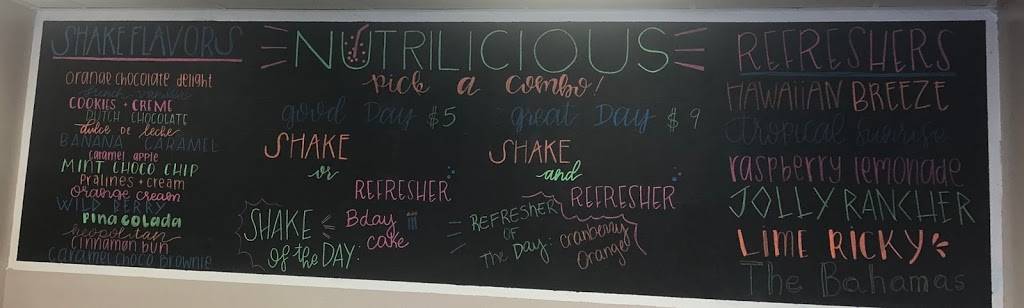 SHAKE FLAVORS
orange chocolate delight
french vanilla
COOKIES + CREME
DUTCH CHOCOLATE
dulce de leche
BANANA CARAMEL
caramel apple
MINT CHOCO CHIP
Pralines + cream
orange cream
WILD BERRY
Pina colada
neopolitan
cinnamon bun
caramel choco brownie
NUTRILICIOUS
pick a combo!
good Day $5
SHAKE
or
REFRESHER
great Day $9
SHAKE
and
REFRESHER
SHAKE
of the DAY:
Bday
cake
REFRESHER
OF
The Day:
cranberry
Orange
REFRESHERS
HAWAIIAN BREEZE
tropical sunrise
raspberry lemonade
JOLLY RANCHER
LIME RICKY
The Bahamas